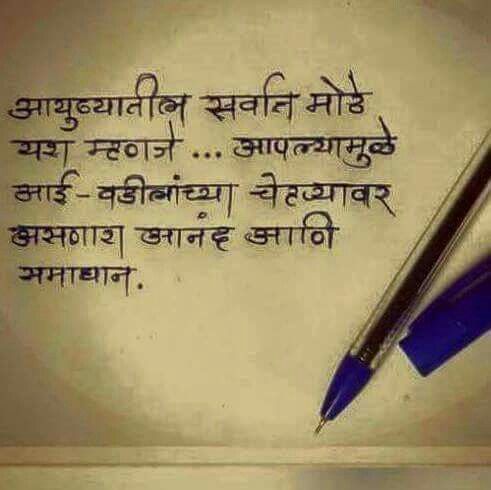 आयुष्यातील सर्वात मोठे
यश म्हणजे ... आपल्यामुळे
आई - वडीलांच्या चेहऱ्यावर
असणारा आनंद आणि
समाधान.